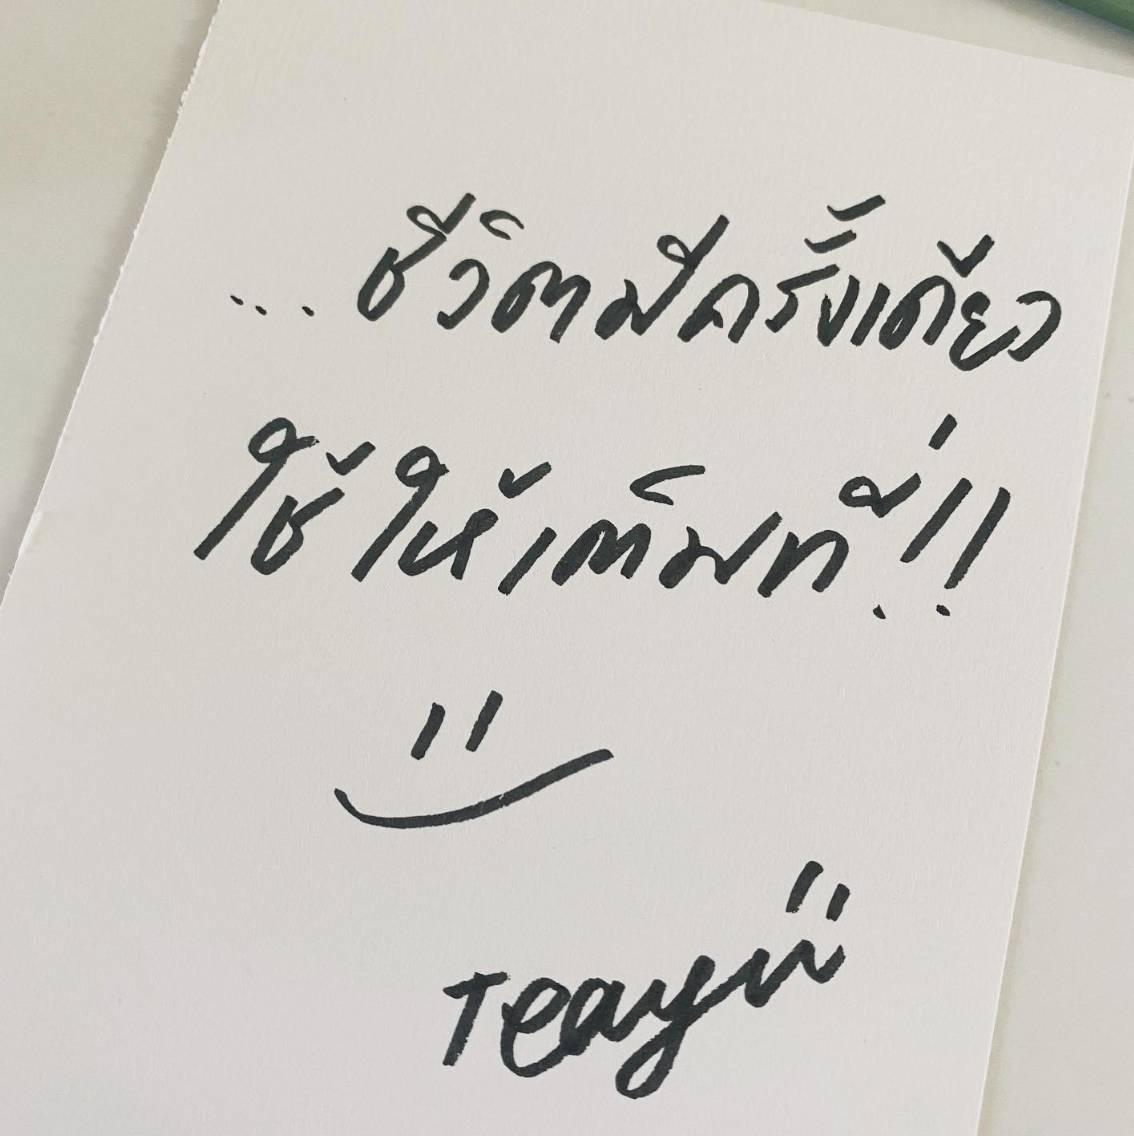 ...ชีวิตมีครั้งเดียว
ใช้ให้เต็มที่!!
Teayii